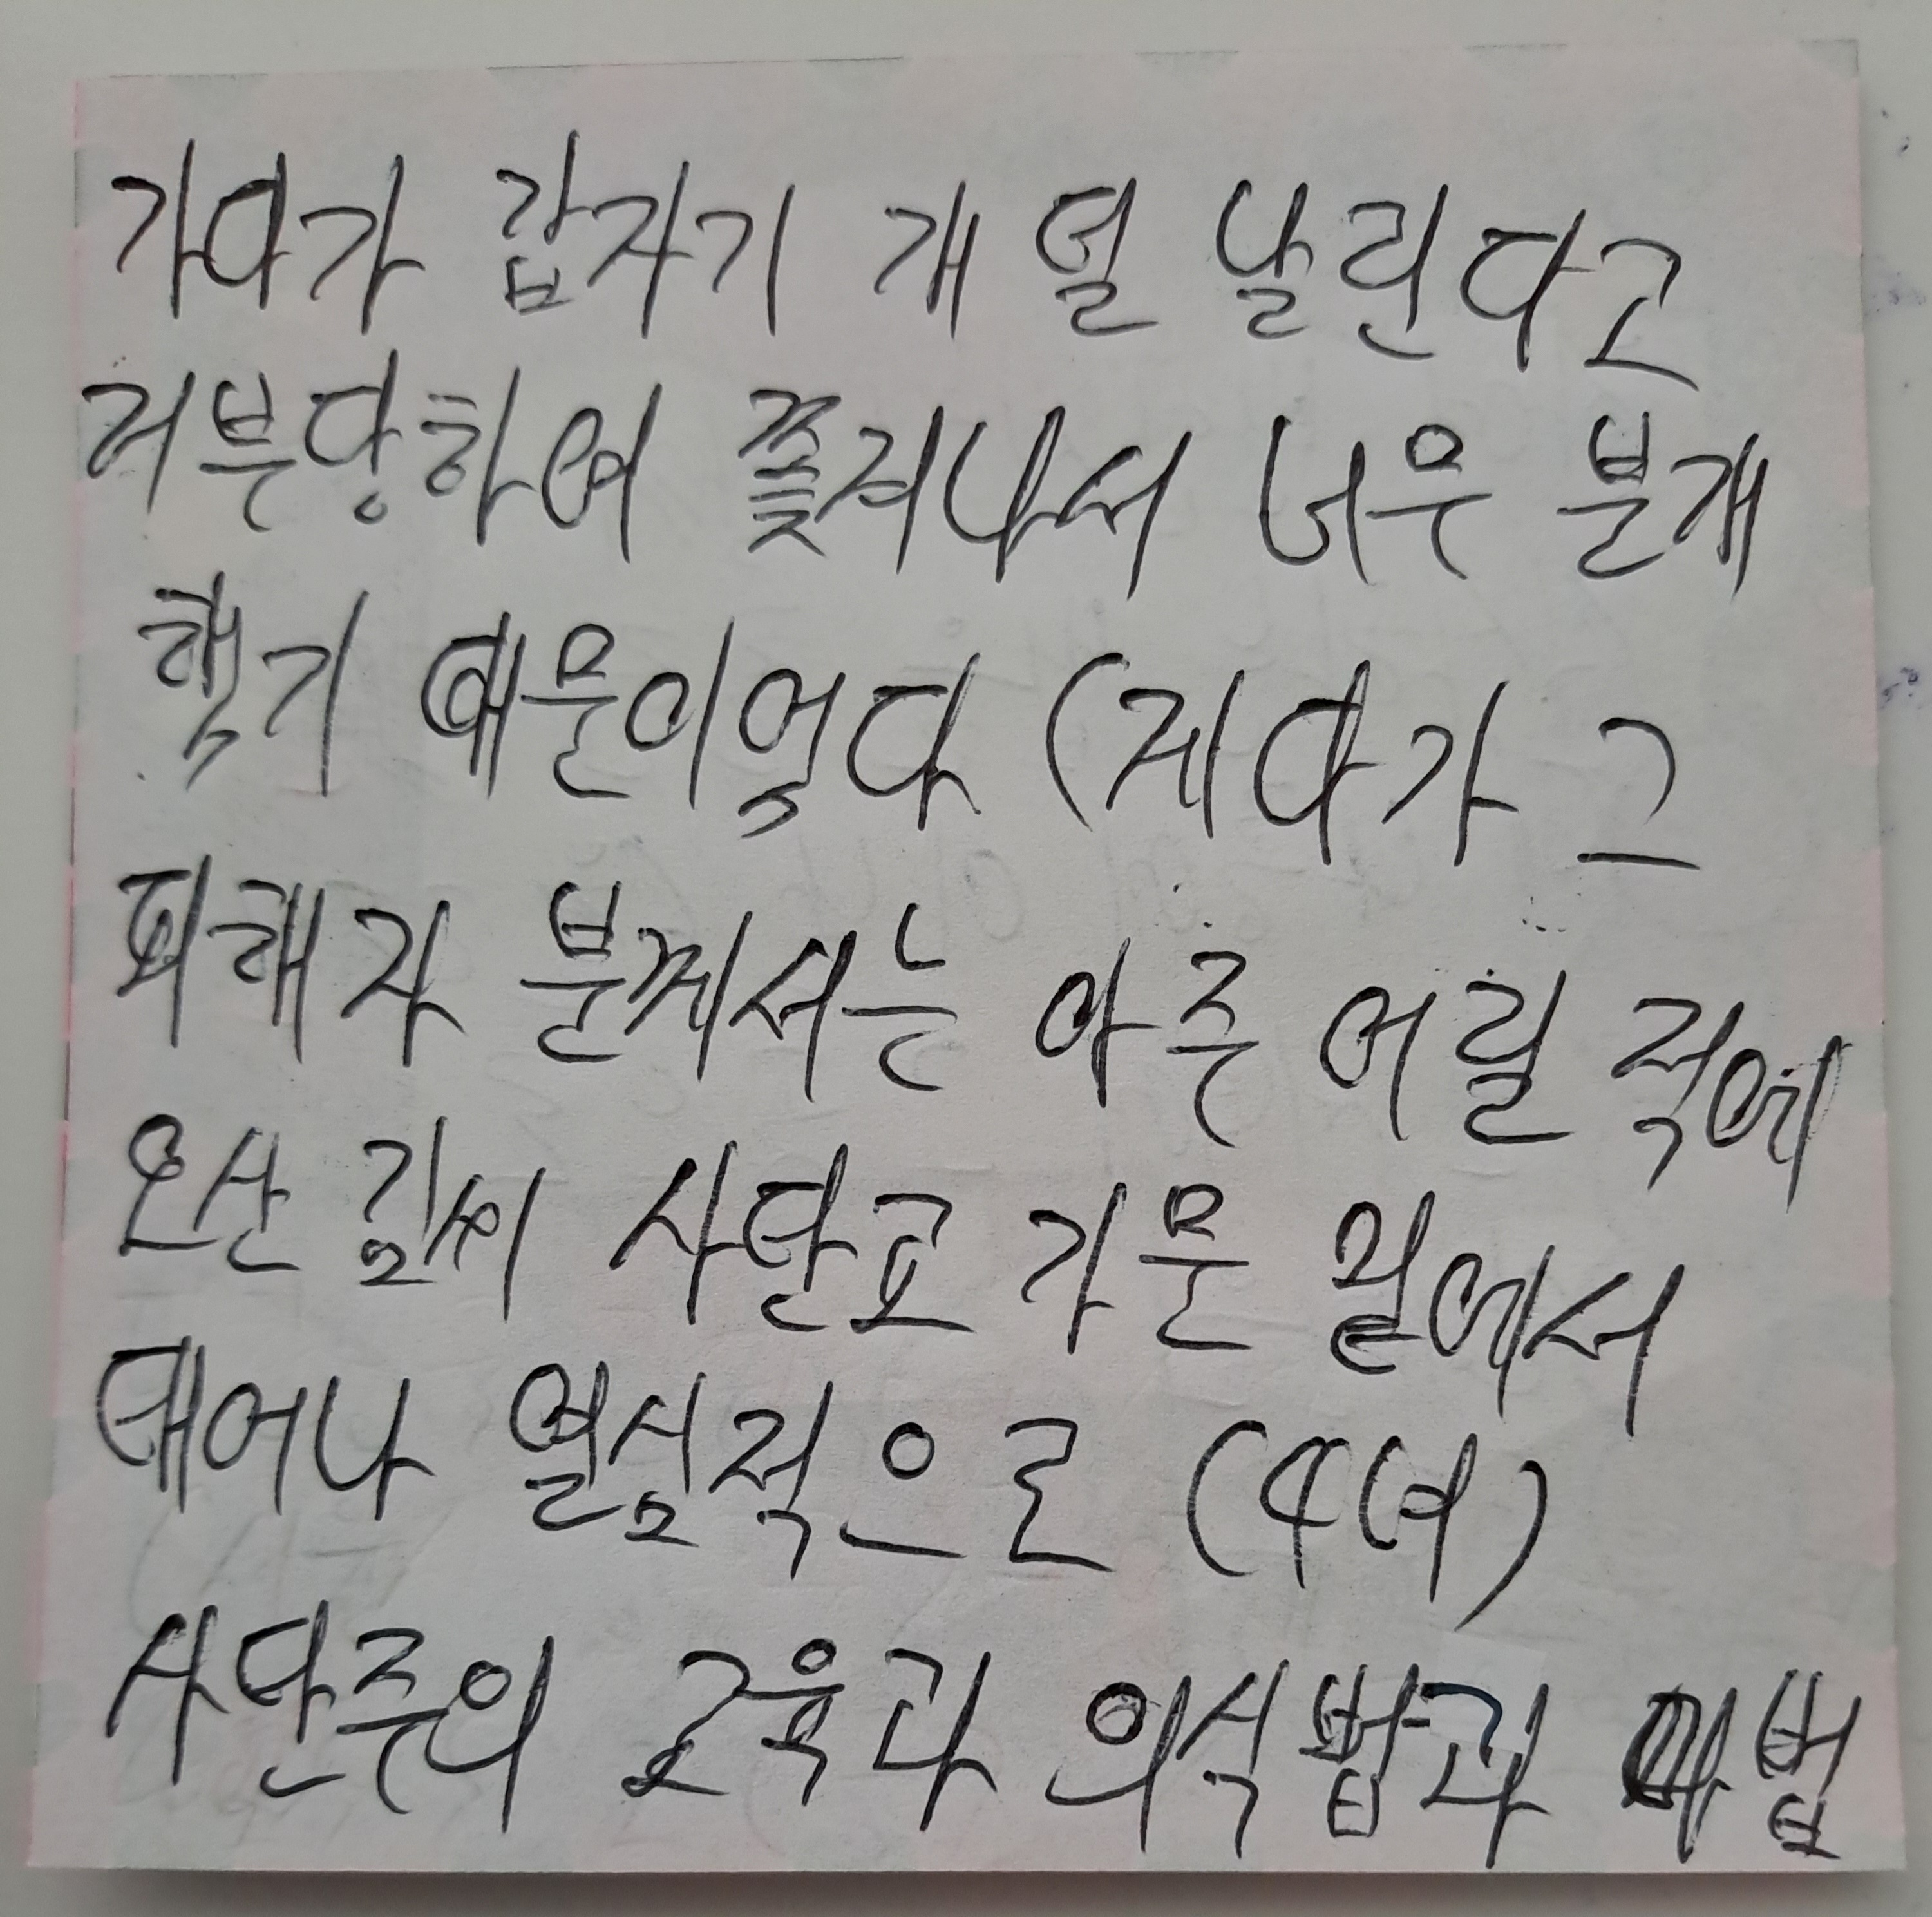 가다가 갑자기 개 덜 날린다고
거부당하여 쫓겨나서 너무 분개
했기 때문이었다 (게다가 그
피해자 분께서는 아주 어릴 적에
오산 김씨 사단교 가문 밑에서
태어나 열심적으로 (4녀)
사단주의 교육과 의식법과 마법